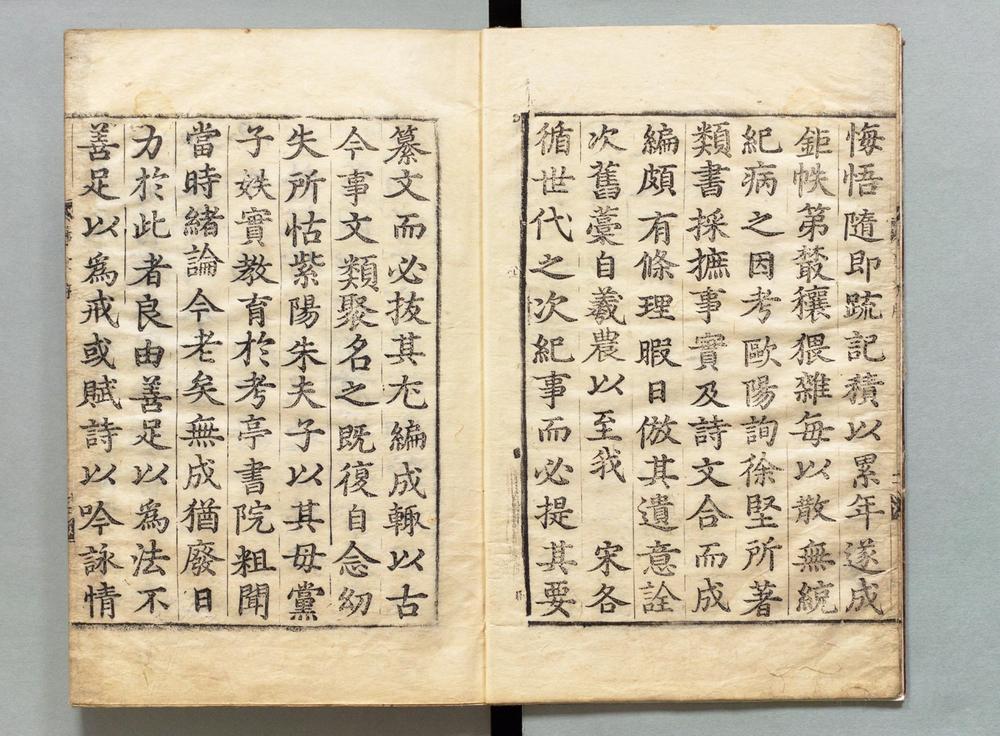 悔悟隨即䟽記積以累年遂成
鉅帙第叢穰猥雜每以散無統
紀病之因考歐陽詢徐堅所著
類書採摭事實及詩文合而成
編頗有條理暇日倣其遺意詮
次舊藁自羲農以至我 宋各
循世代之次紀事而必提其要
纂文而必拔其尤編成輙以古
今事文類聚名之既復自念幼
失所怙紫陽朱夫子以其母黨
子姪實教育於考亭書院粗聞
當時緒論今老矣無成猶廢日
力於此者良由善足以爲法不
善足以爲戒或賦詩以吟詠情